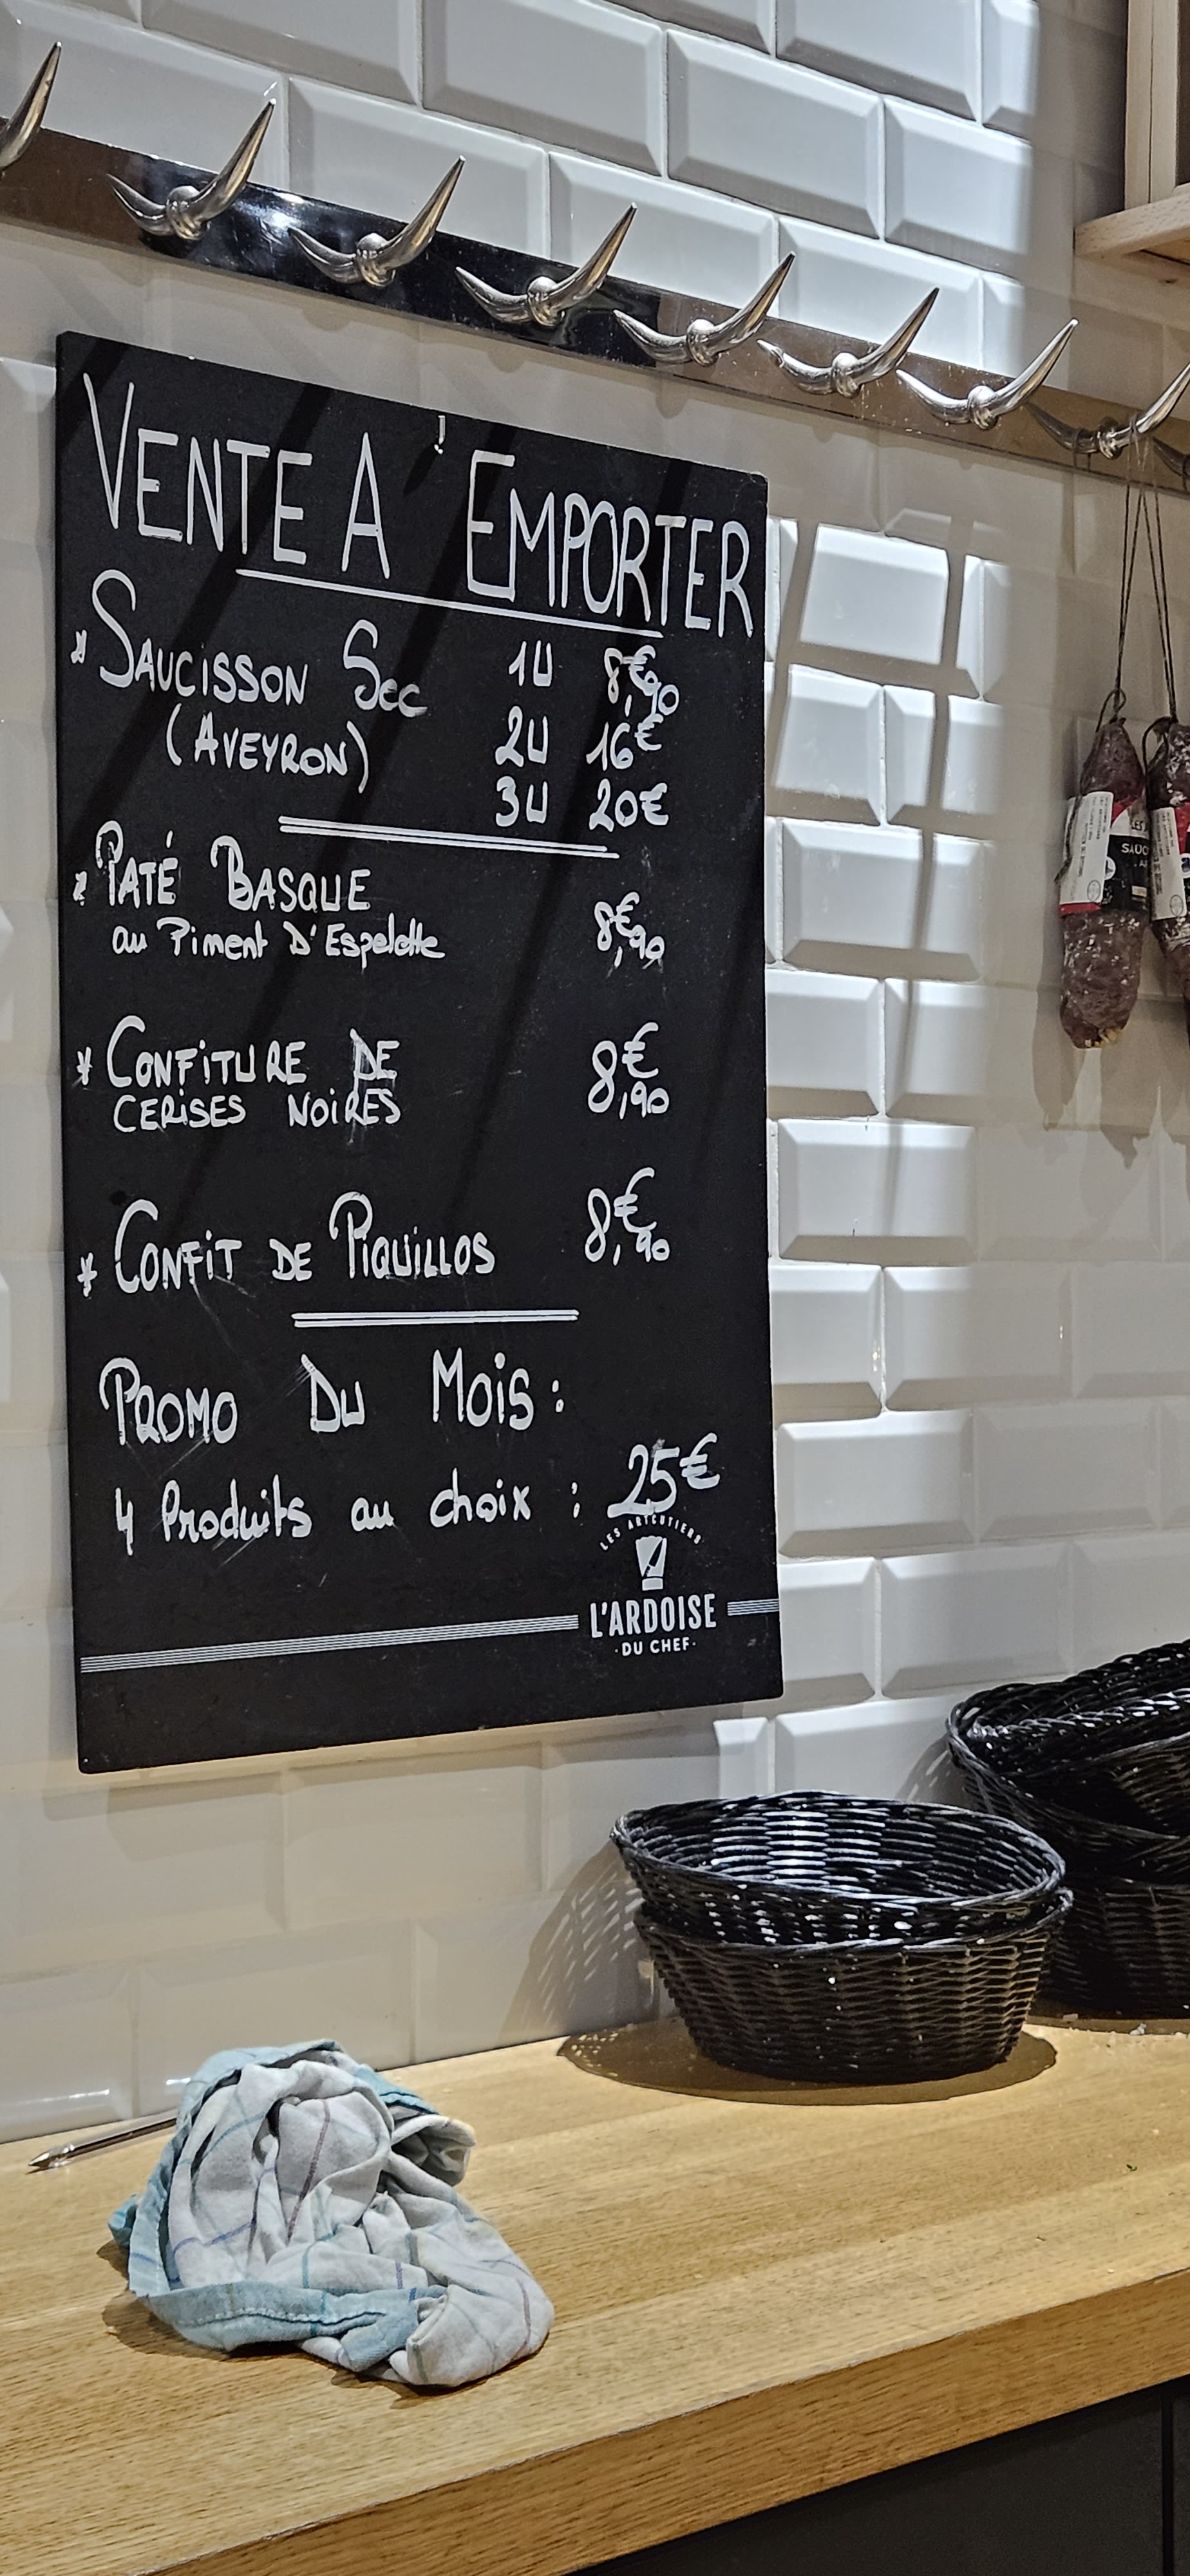 VENTE A ' EMPORTER
* SAUCISSON Sec 1U 8,90€
(AVEYRON) 2U 16€
3U 20€
* PATÉ BASQUE
au Piment D'Espelette 8,90€
* CONFITURE DE
CERISES NOIRES 8,90€
* CONFIT DE PIQUILLOS 8,90€
PROMO DU MOIS :
4 Produits au choix : 25€
LES ARTCUTIERS
L'ARDOISE
·DU CHEF·
LES